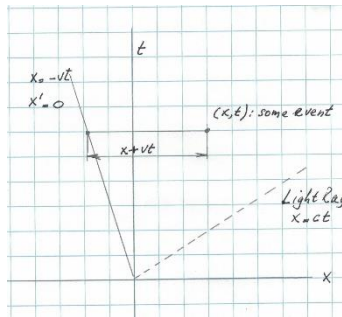 t
x = -vt
x' = 0
(x,t): some event
x+vt
Light Ray
x = ct
x